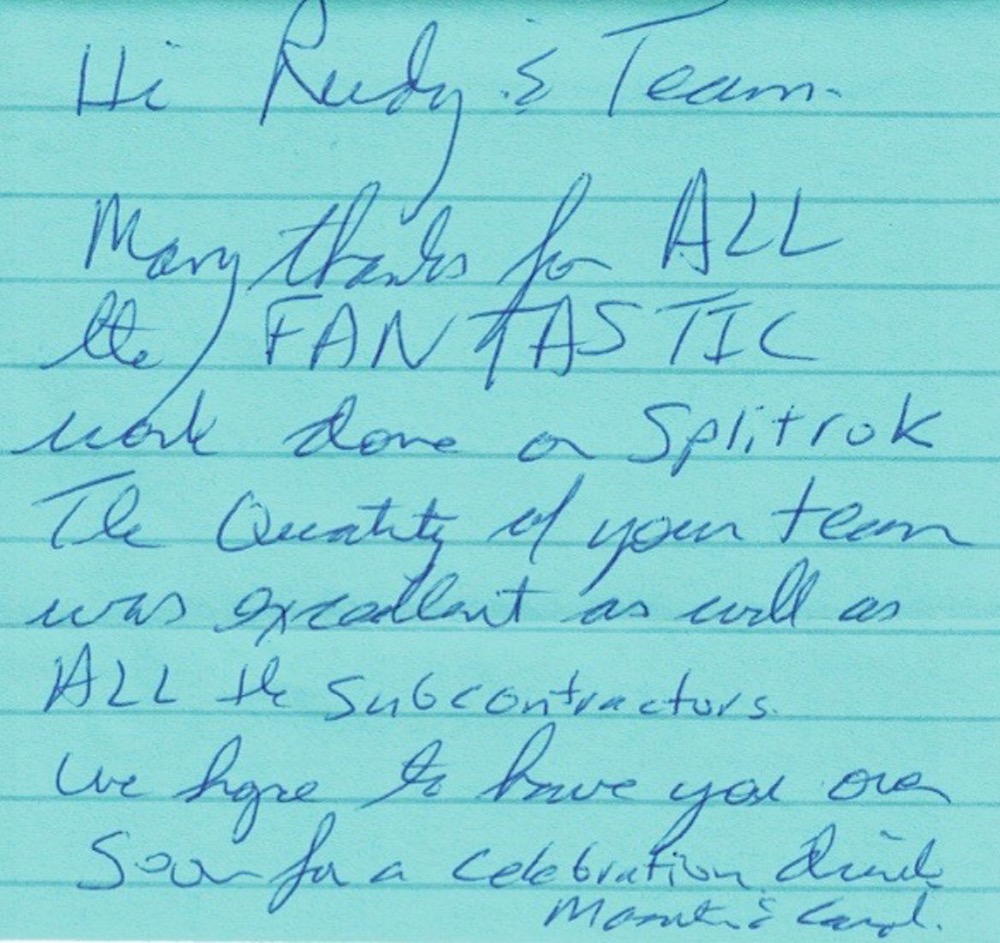 Hi Rudy & Team.
Many thanks for ALL
the FANTASTIC
work done on Splitrok
The Quality of your team
was excellent as well as
ALL the subcontractors.
We hope to have you over
Soon for a celebration drink
& Carol.